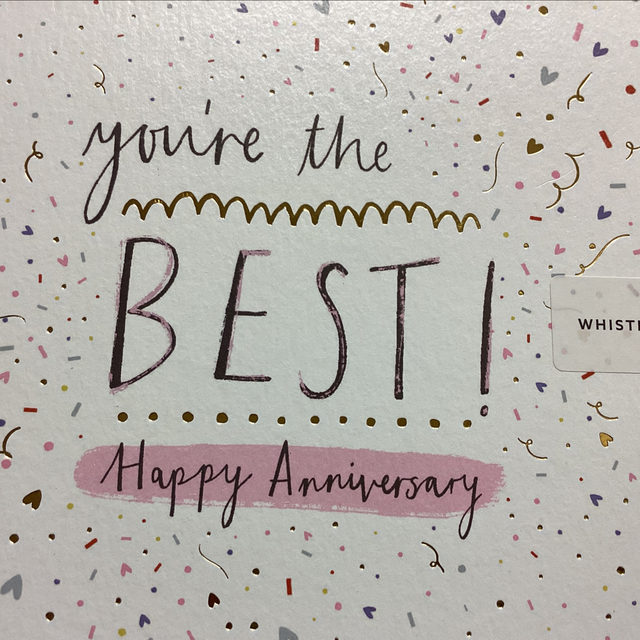 you're the
BEST!
Happy Anniversary